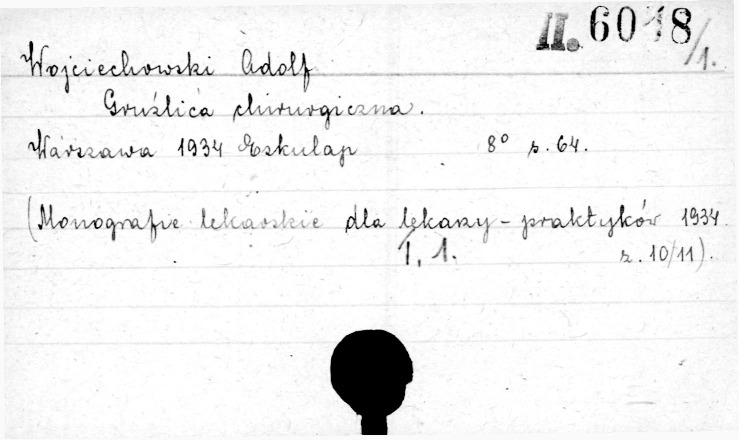 II. 6018/1.
Wojciechowski Adolf
Gruźlica chirurgiczna.
Warszawa 1934 Eskulap 8° s. 64.
(Monografie lekarskie dla lekarzy - praktyków 1934
T. 1. z. 10/11).